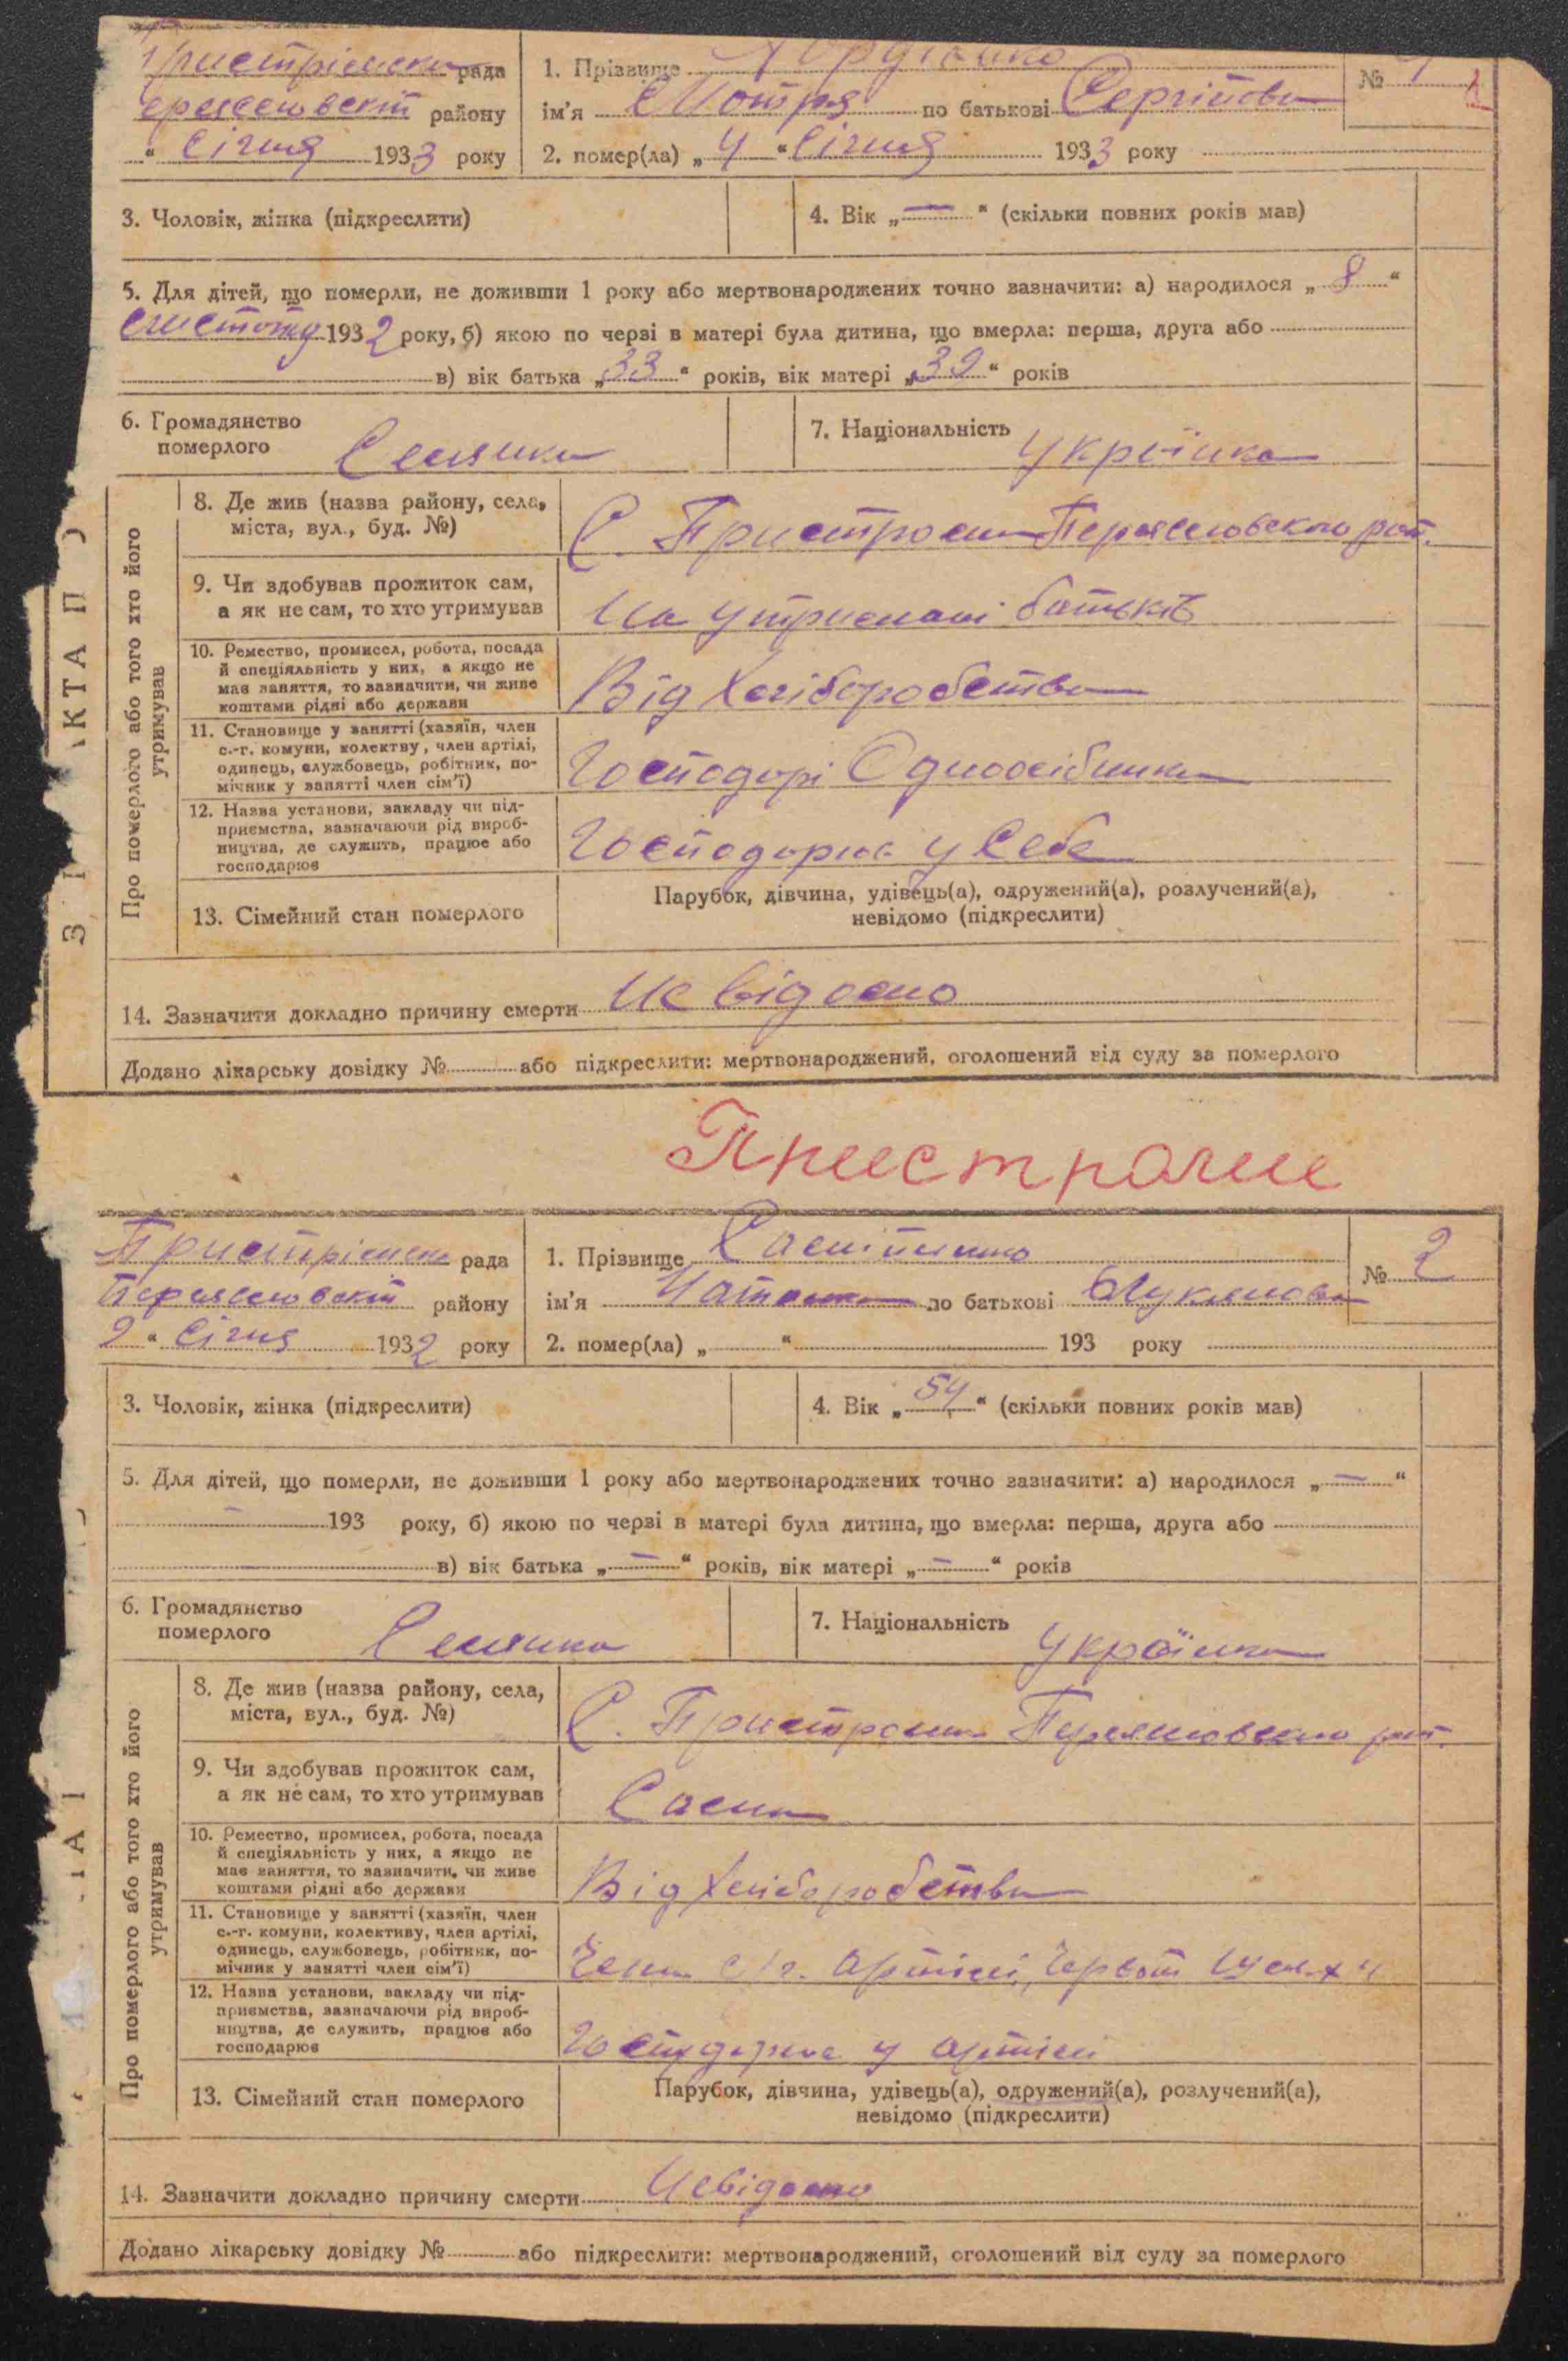 рада
1. Прізвище
№ 1
району
ім'я Мотря по батькові Сергіївна
" Січня 1933 року
2. помер(ла) „ 4 " Січня 1933 року
3. Чоловік, жінка (підкреслити)
4. Вік „ — " (скільки повних років мав)
5. Для дітей, що померли, не доживши 1 року або мертвонароджених точно зазначити: а) народилося „ 8 "
1932 року, б) якою по черзі в матері була дитина, що вмерла: перша, друга або
в) вік батька „ 33 " років, вік матері „ 39 " років
6. Громадянство
померлого
Селянка
7. Національність
Українка
8. Де жив (назва району, села,
міста, вул., буд. №)
С. Пристроми Переяславского рай.
9. Чи здобував прожиток сам,
а як не сам, то хто утримував
На утримані батьків
10. Ремество, промисел, робота, посада
й спеціяльність у них, а якщо не
має заняття, то зазначити, чи живе
коштами рідні або держави
Від Хліборобства
11. Становище у занятті (хазяїн, член
с.-г. комуни, колектву, член артілі,
одинець, службовець, робітник, по-
мічник у занятті член сім'ї)
Господарі Одноосібники
12. Назва установи, закладу чи під-
приємства, зазначаючи рід вироб-
ництва, де служить, працює або
господарює
Господарює у Себе
13. Сімейний стан померлого
Парубок, дівчина, удівець(а), одружений(а), розлучений(а),
невідомо (підкреслити)
Про померлого або того хто його
утримував
14. Зазначити докладно причину смерти Не відомо
Додано лікарську довідку № або підкреслити: мертвонароджений, оголошений від суду за померлого
Пристроми
рада
1. Прізвище
№ 2
району
ім'я по батькові Лукянова
2 " Січня 1932 року
2. помер(ла) „ " 193 року
3. Чоловік, жінка (підкреслити)
4. Вік „ 54 " (скільки повних років мав)
5. Для дітей, що померли, не доживши 1 року або мертвонароджених точно зазначити: а) народилося „ — "
— 193 року, б) якою по черзі в матері була дитина, що вмерла: перша, друга або
в) вік батька „ — " років, вік матері „ — " років
6. Громадянство
померлого
Селянка
7. Національність
Українка
8. Де жив (назва району, села,
міста, вул., буд. №)
С. Пристроми Переяславского рай.
9. Чи здобував прожиток сам,
а як не сам, то хто утримував
Сама
10. Ремество, промисел, робота, посада
й спеціяльність у них, а якщо не
має заняття, то зазначити, чи живе
коштами рідні або держави
Від Хліборобства
11. Становище у занятті (хазяїн, член
с.-г. комуни, колективу, член артілі,
одинець, службовець, робітник, по-
мічник у занятті член сім'ї)
Член с/г. артілі
12. Назва установи, закладу чи під-
приємства, зазначаючи рід вироб-
ництва, де служить, працює або
господарює
Господарює у артілі
13. Сімейний стан померлого
Парубок, дівчина, удівець(а), одружений(а), розлучений(а),
невідомо (підкреслити)
Про померлого або того хто його
утримував
14. Зазначити докладно причину смерти Невідомо
Додано лікарську довідку № або підкреслити: мертвонароджений, оголошений від суду за померлого